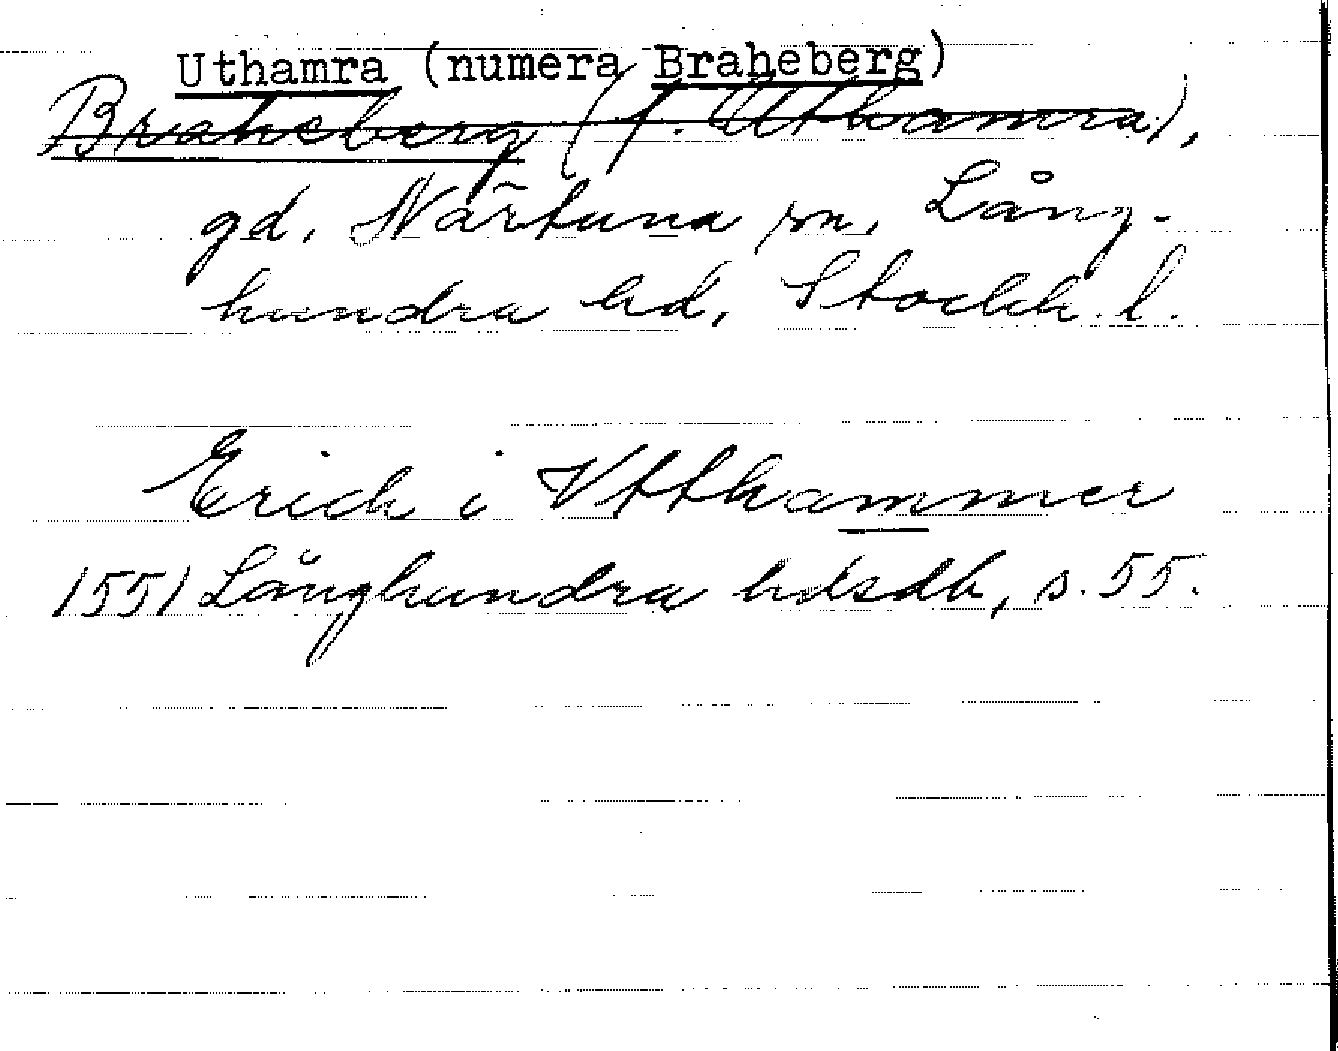 Uthamra (numera Braheberg)
Braheberg (f. Uthamra),
gd, Närtuna sn, Lång-
hundra hd, Stockh. l.
Erich i Vtthammer
1551 Långhundra hdsdb, s. 55.